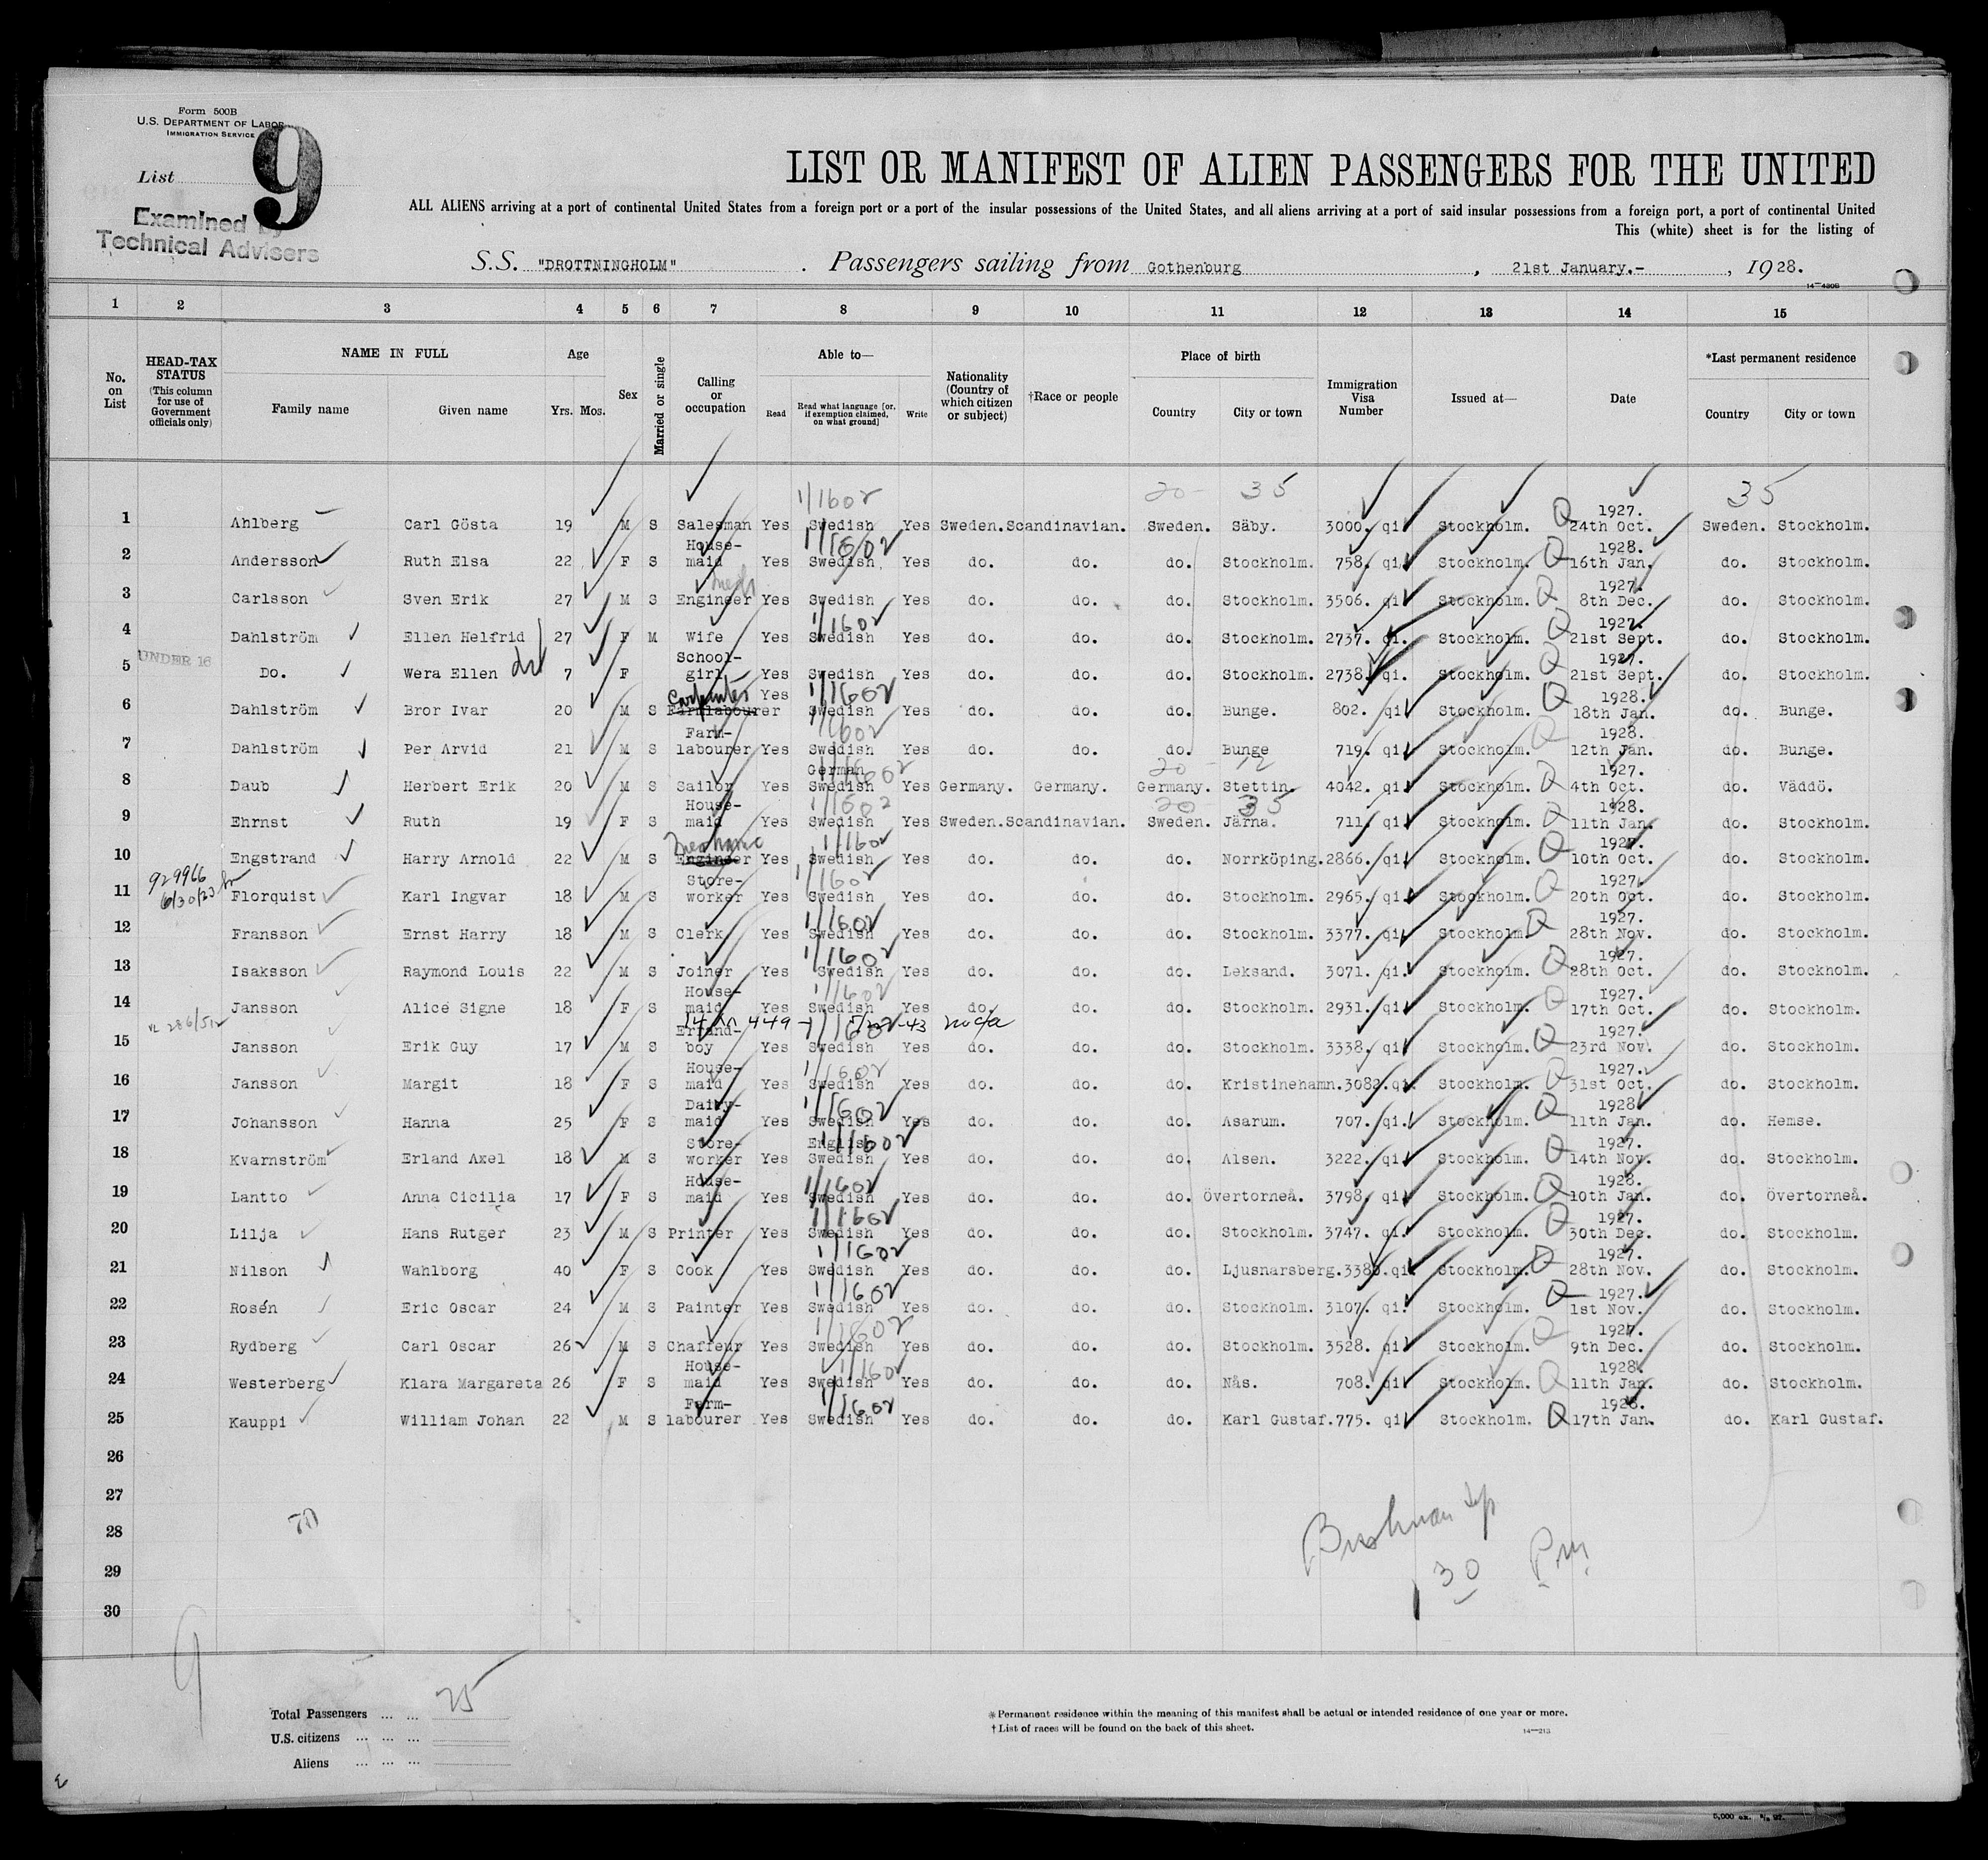 Form 500B
U.S. DEPARTMENT OF LABOR
IMMIGRATION SERVICE
List 9
Examined by
Technical Advisers
LIST OR MANIFEST OF ALIEN PASSENGERS FOR THE UNITED
ALL ALIENS arriving at a port of continental United States from a foreign port or a port of the insular possessions of the United States, and all aliens arriving at a port of said insular possessions from a foreign port, a port of continental United
This (white) sheet is for the listing of
S.S. "DROTTNINGHOLM" . Passengers sailing from Gothenburg , 21st January.- , 1928.
1 2 3 4 5 6 7 8 9 10 11 12 13 14 15
No. on List
HEAD-TAX STATUS (This column for use of Government officials only)
NAME IN FULL Family name Given name
Age Yrs. Mos.
Sex
Married or single
Calling or occupation
Able to— Read Read what language [or, if exemption claimed, on what ground] Write
Nationality (Country of which citizen or subject)
†Race or people
Place of birth Country City or town
Immigration Visa Number
Issued at—
Date
*Last permanent residence Country City or town
1/1602 20- 35 35
1 Ahlberg Carl Gösta 19 M S Salesman Yes Swedish Yes Sweden. Scandinavian. Sweden. Säby. 3000. qi Stockholm. Q 1927. 24th Oct. Sweden. Stockholm.
2 Andersson Ruth Elsa 22 F S House-maid Yes 1/1602 Swedish Yes do. do. do. Stockholm. 758. qi Stockholm. Q 1928. 16th Jan. do. Stockholm.
3 Carlsson Sven Erik 27 M S Engineer Yes Swedish Yes do. do. do. Stockholm. 3506. qi Stockholm. Q 1927. 8th Dec. do. Stockholm.
4 Dahlström Ellen Helfrid 27 F M Wife Yes 1/1602 Swedish Yes do. do. do. Stockholm. 2737. qi. Stockholm. Q 1927. 21st Sept. do. Stockholm.
5 UNDER 16 Do. Wera Ellen 7 F School-girl Yes Swedish Yes do. do. do. Stockholm. 2738. qi. Stockholm. Q 1927. 21st Sept. do. Stockholm.
6 Dahlström Bror Ivar 20 M S Carpenter Farmlabourer Yes 1/1602 Swedish Yes do. do. do. Bunge. 802. qi Stockholm. Q 1928. 18th Jan. do. Bunge.
7 Dahlström Per Arvid 21 M S Farm-labourer Yes 1/1602 Swedish Yes do. do. do. Bunge 719. qi Stockholm. Q 1928. 12th Jan. do. Bunge.
8 Daub Herbert Erik 20 M S Sailor Yes German 1/1602 Swedish Yes Germany. Germany. 20 - 12 Germany. Stettin. 4042. qi Stockholm. Q 1927. 4th Oct. do. Väddö.
9 Ehrnst Ruth 19 F S House-maid Yes 1/1602 Swedish Yes Sweden. Scandinavian. 20 35 Sweden. Järna. 711. qi Stockholm. Q 1928. 11th Jan. do. Stockholm.
10 Engstrand Harry Arnold 22 M S Mechanic Engineer Yes 1/1602 Swedish Yes do. do. do. Norrköping. 2866. qi Stockholm. Q 1927. 10th Oct. do. Stockholm.
929966
11 Florquist Karl Ingvar 18 M S Store-worker Yes 1/1602 Swedish Yes do. do. do. Stockholm. 2965. qi Stockholm. Q 1927. 20th Oct. do. Stockholm.
12 Fransson Ernst Harry 18 M S Clerk Yes 1/1602 Swedish Yes do. do. do. Stockholm. 3377. qi Stockholm. Q 1927. 28th Nov. do. Stockholm.
13 Isaksson Raymond Louis 22 M S Joiner Yes 1/1602 Swedish Yes do. do. do. Leksand. 3071. qi. Stockholm. Q 1927. 28th Oct. do. Stockholm.
14 Jansson Alice Signe 18 F S House-maid Yes 1/1602 Swedish Yes do. do. do. Stockholm. 2931. qi Stockholm. Q 1927. 17th Oct. do. Stockholm.
15 Jansson Erik Guy 17 M S Errand-boy Yes 1/1602 Swedish Yes do. do. do. Stockholm. 3338. qi Stockholm. Q 1927. 23rd Nov. do. Stockholm.
16 Jansson Margit 18 F S House-maid Yes 1/1602 Swedish Yes do. do. do. Kristinehamn. 3082. qi. Stockholm. Q 1927. 31st Oct. do. Stockholm.
17 Johansson Hanna 25 F S Dairy-maid Yes 1/1602 Swedish Yes do. do. do. Asarum. 707. qi. Stockholm. Q 1928. 11th Jan. do. Hemse.
18 Kvarnström Erland Axel 18 M S Store-worker Yes English 1/1602 Swedish Yes do. do. do. Alsen. 3222. qi Stockholm. Q 1927. 14th Nov. do. Stockholm.
19 Lantto Anna Cicilia 17 F S House-maid Yes 1/1602 Swedish Yes do. do. do. Övertorneå. 3798. qi Stockholm. Q 1928. 10th Jan. do. Övertorneå.
20 Lilja Hans Rutger 23 M S Printer Yes 1/1602 Swedish Yes do. do. do. Stockholm. 3747. qi. Stockholm. Q 1927. 30th Dec. do. Stockholm.
21 Nilson Wahlborg 40 F S Cook Yes 1/1602 Swedish Yes do. do. do. Ljusnarsberg. qi Stockholm. Q 1927. 28th Nov. do. Stockholm.
22 Rosén Eric Oscar 24 M S Painter Yes 1/1602 Swedish Yes do. do. do. Stockholm. 3107. qi. Stockholm. Q 1927. 1st Nov. do. Stockholm.
23 Rydberg Carl Oscar 26 M S Chaffeur Yes 1/1602 Swedish Yes do. do. do. Stockholm. 3528. qi Stockholm. Q 1927. 9th Dec. do. Stockholm.
24 Westerberg Klara Margareta 26 F S House-maid Yes 1/1602 Swedish Yes do. do. do. Nås. 708. qi Stockholm. Q 1928. 11th Jan. do. Stockholm.
25 Kauppi William Johan 22 M S Farm-labourer Yes 1/1602 Swedish Yes do. do. do. Karl Gustaf. 775. qi Stockholm. Q 1928. 17th Jan. do. Karl Gustaf.
26
27
28
29
30
9
Total Passengers ... ... 25
U.S. citizens ... ... ...
Aliens ... ... ...
* Permanent residence within the meaning of this manifest shall be actual or intended residence of one year or more.
† List of races will be found on the back of this sheet.
14—213